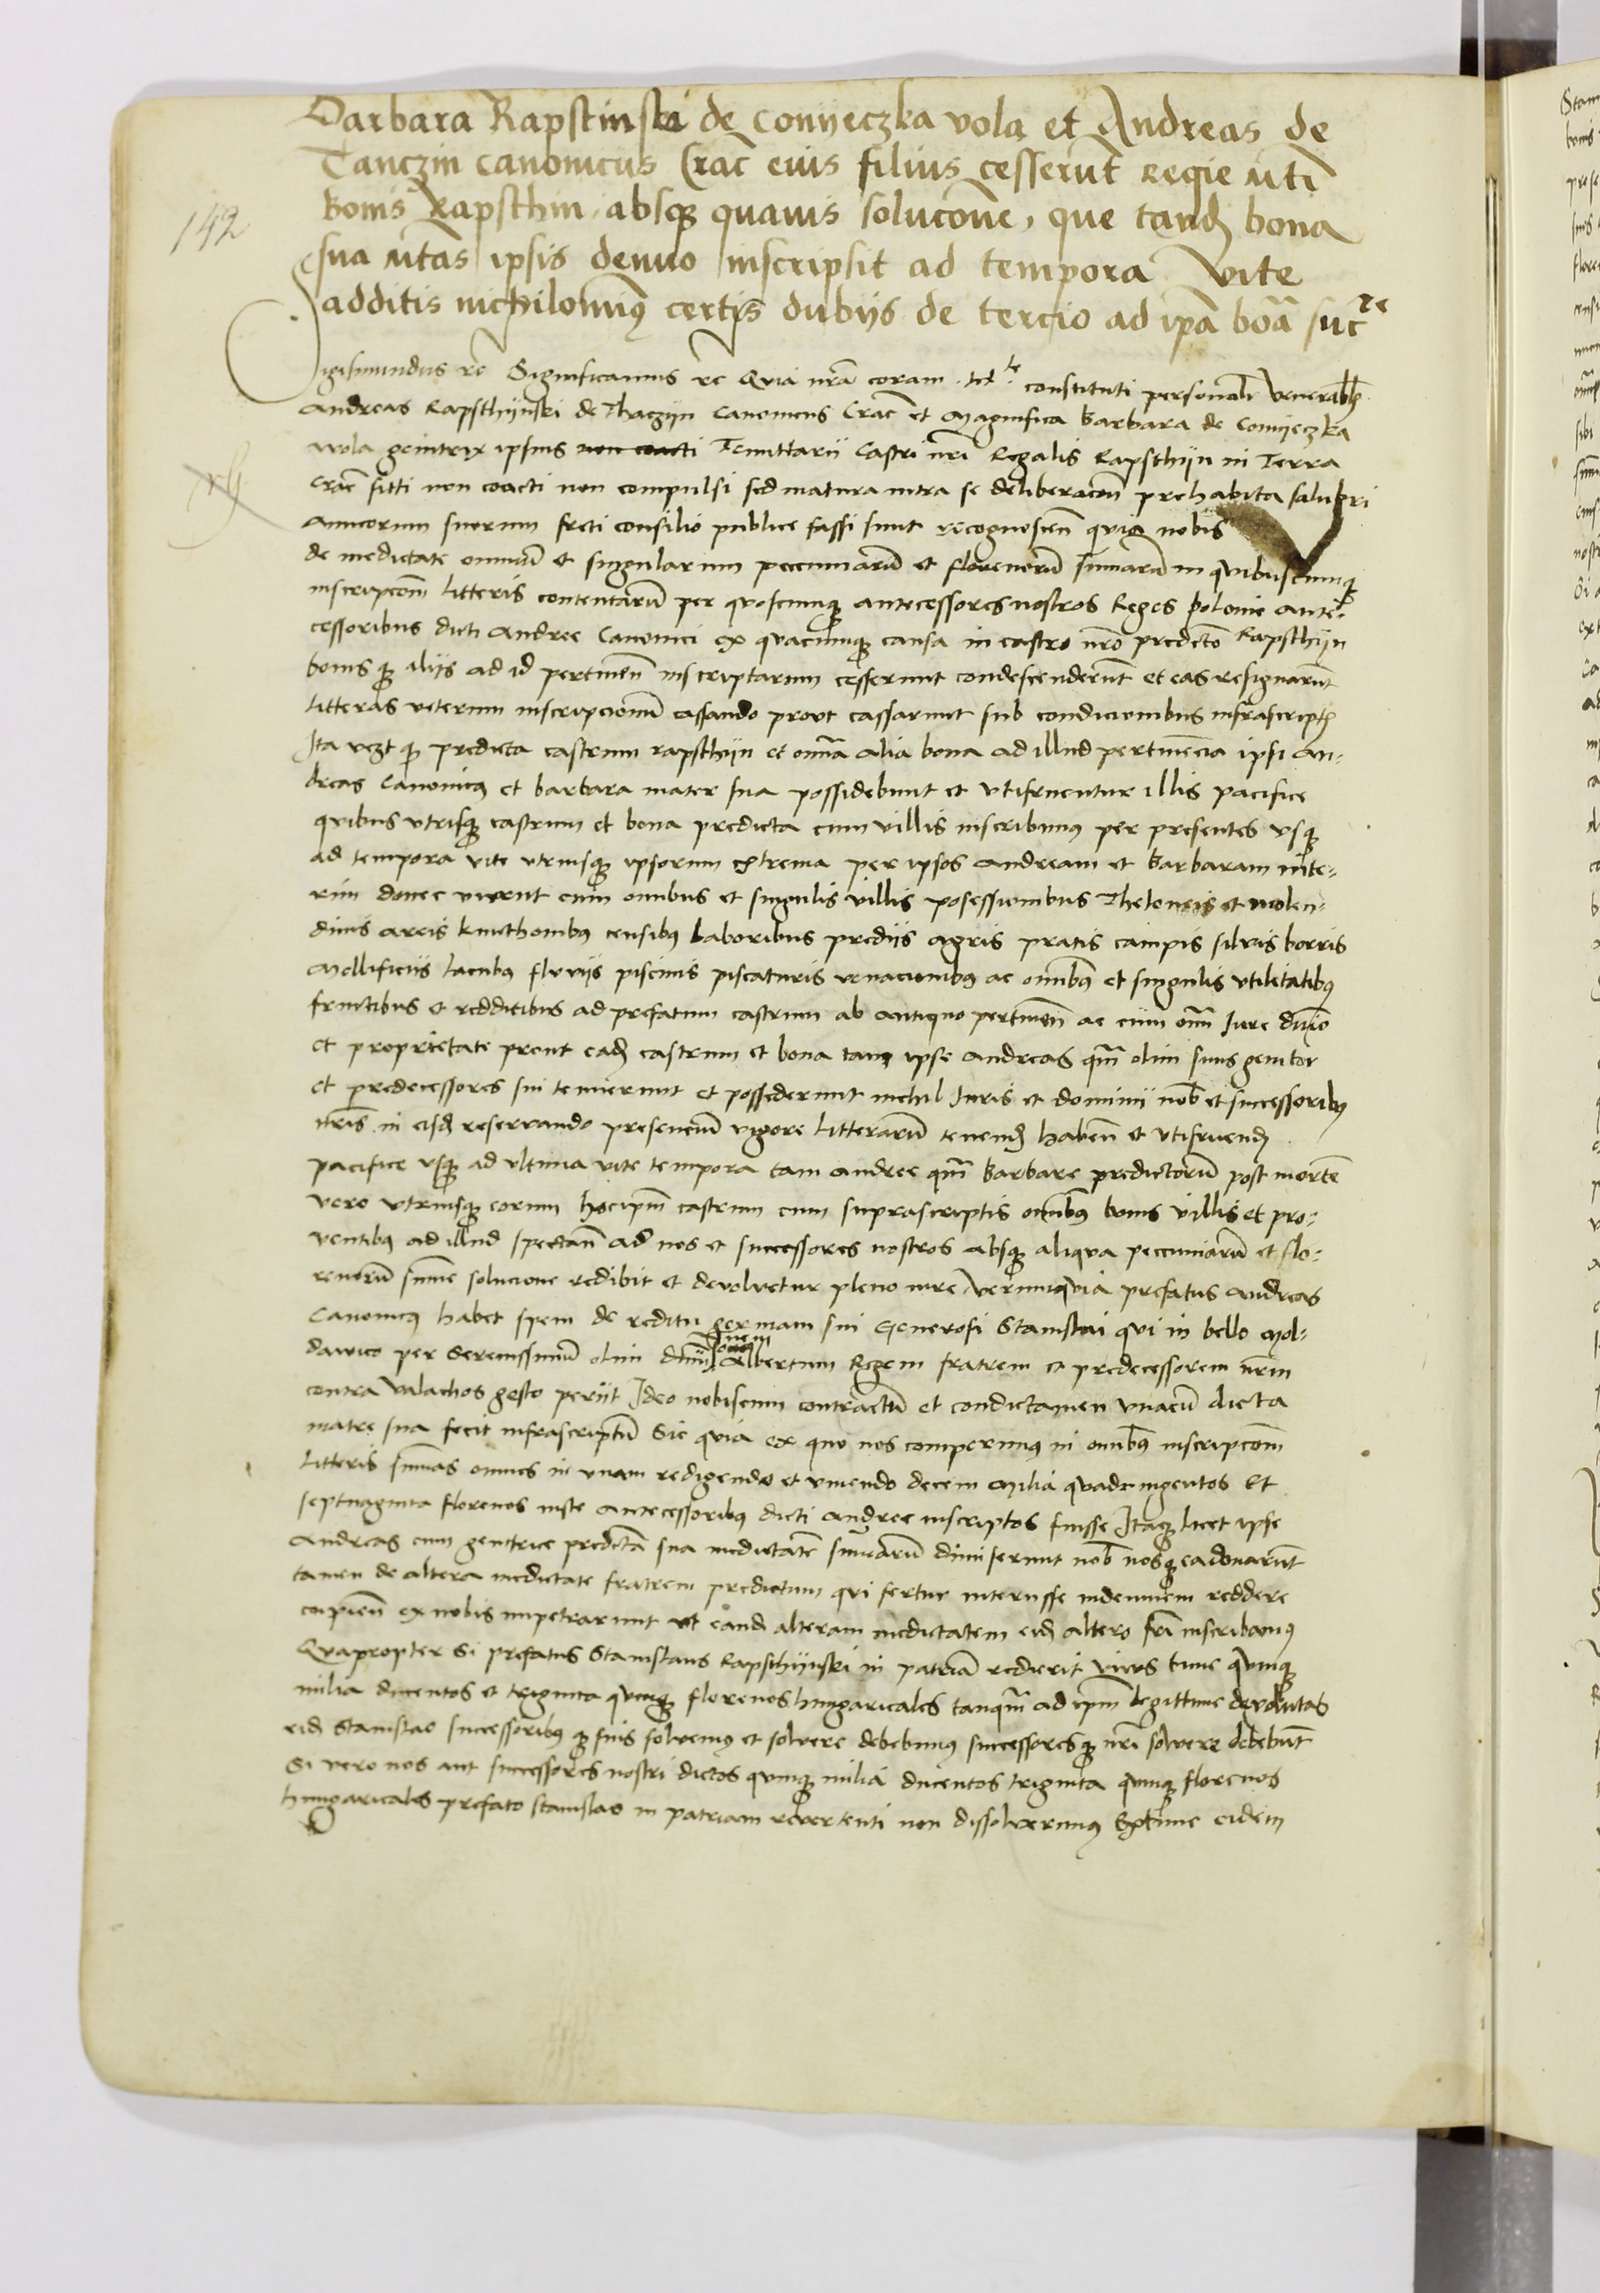 Barbara Rapstinska de Conyeczka vola et Andreas de
Tanczin canonicus Crac̄ eius filius cesserūt Regie M̄ti
bonis Rapsthin absq3 quauis solucōne, que tand3 bona
sua M̄tas ipsis denuo inscripsit ad tempora vite
additis nichilomin9 certis dubijs de tercio ad ipā bōa succ̄re
142
Sigismundus rc̄ Significamus rc̄ Quia nrā coram M̄te constituti personalr̄ venerabil3
Andreas Rapsthijnski de Thaczijn Canonicus Crac̄ et Magnifica Barbara de Conijeczka
Wola genitrix ipsius non coacti Tenuttarii Castri nrī Regalis Rapsthijn in Terra
Crac̄ sitti non coacti non compulsi sed matura intra se deliberacōn̄ prehabita salubri
amicorum suorum freti consilio publice fassi sunt recognoscen̄ quia nobis
de medietate omniū et singularum pecuniarū et florenorū sūmarū in quibuscumq3
inscripcōn̄ litteris contentarū per quoscumq3 antecessores nostros Reges Polonie ante-
cessoribus dicti Andree Canonici ex quacumq3 causa in castro nrō predicto Rapsthijn
bonis q3 aliis ad id pertinen̄ inscriptarum cesserunt condescenderūt et eas resignarūt
litteras veterum inscripcionū cassando prout cassarunt sub condicionibus infrascript3
Ita vz3t q3 predicta castrum rapsthijn et omīa alia bona ad illud pertinēcia ipsi An-
dreas Canonic9 et barbara mater sua possidebunt et vtifruentur illis pacifice
quibus vtrisq3 castrum et bona predicta cum villis inscribimus per presentes vsq3
ad tempora vite vtriusq3 ipsorum extrema per ipsos Andream et Barbaram inte-
rim donec vixerint cum omnibus et singulis villis posessionibus Theloneis et molen-
dinis areis kmethonibus censibus laboribus prediis agris pratis campis silvis borris
Mellificiis lacubus fluviis piscinis piscaturis venacionibus ac omnibus et singulis vtilitatibus
fructibus et redditibus ad prefatum castrum ab antiquo pertinen̄ ac cum omī Iure dnīo
et proprietate prout ead3 castrum et bona tam ipse andreas qm̄ olim suus genitor
et predecessores sui tenuerunt et possederunt nichil Iuris et dominii nob̄ et successoribus
nrīs in eisd3 reservando presenciū vigore litterarū tenend3 haben̄ et vtifruend3
pacifice vsq3 ad vltima vite tempora tam andree qm̄ Barbare predictorū post mortē
vero vtriusq3 eorum hocipm̄ castrum cum suprascriptis omnibus bonis villis et pro-
ventibus ad illud spectan̄ ad nos et successores nostros absq3 aliqua pecuniarū et flo-
renorū sūme solucione redibit et devolvetur pleno iure Verum quia prefatus andreas
Canonicus habet spem de reditu germani sui Generosi Stanislai qui in bello Mol-
davico per serenissimū olim dn̄m Joānem Albertum Regem fratrem et predecessorem nrm̄
contra Valachos gesto periit Ideo nobiscum contractū et condictamen vnacū dicta
matre sua fecit infrascriptū Sic quia ex quo nos comperimus in omnibus inscripcōn̄
litteris sūmas omnes in vnam redigendo et vniendo decem Milia quadringentos et
septuaginta florenos iuste antecessoribus dicti andree inscriptos fuisse Itaq3 licet ipse
Andreas cum genitrice predicta sua medietatē sūmarū dimiserunt nob̄ nosq3 ea donarūt
tamen de altera medietate fratrem predictum qui fertur interisse indemnem reddere
cupien̄ ex nobis impetrarunt vt eand3 alteram medietatem eid3 altero frī inscribamus
Quapropter Si prefatus Stanislaus Rapsthijnski in patriā redierit vivus tunc quinq3
milia ducentos et triginta quinq3 florenos hungaricales tanqm̄ ad ipm̄ legittime devolutas
eid3 Stanislao successoribus q3 suis solvemus et solvere debebimus successoresq3 nrī solvere debebūt
Si vero nos aut successores nostri dictos quinq3 milia ducentos triginta quinq3 florenos
hungaricales prefato stanislao in patriam revertenti non dissolverimus Extunc eidem